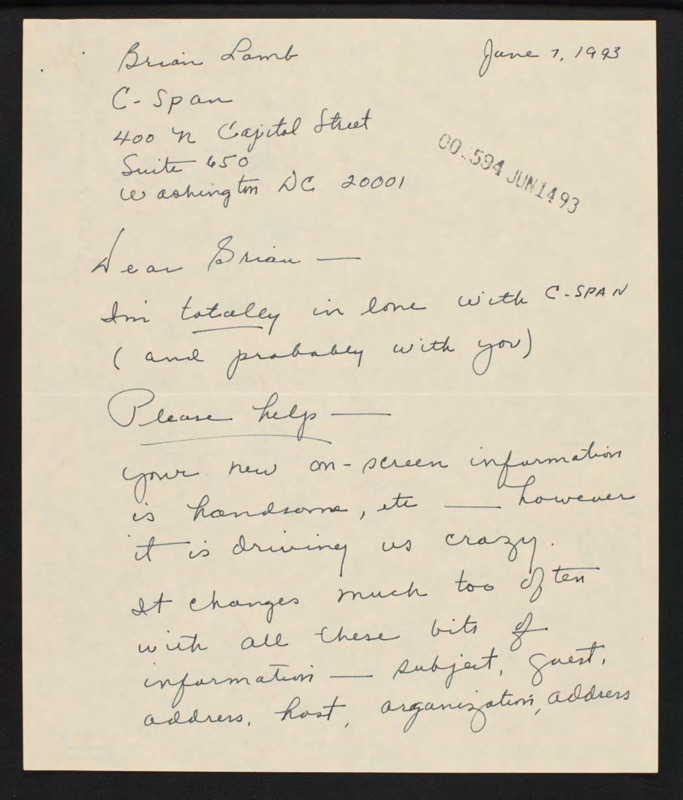 Brian Lamb June 7, 1993
C-Span
400 N Capitol Street
Suite 650
Washington DC 20001
00.594 JUN 14 93
Dear Brian —
I'm totally in love with C-SPAN
(and probably with you)
Please help —
your new on-screen information
is handsome, etc — however
it is driving us crazy.
It changes much too often
with all these bits of
information — subject, guest,
address, host, organization, address